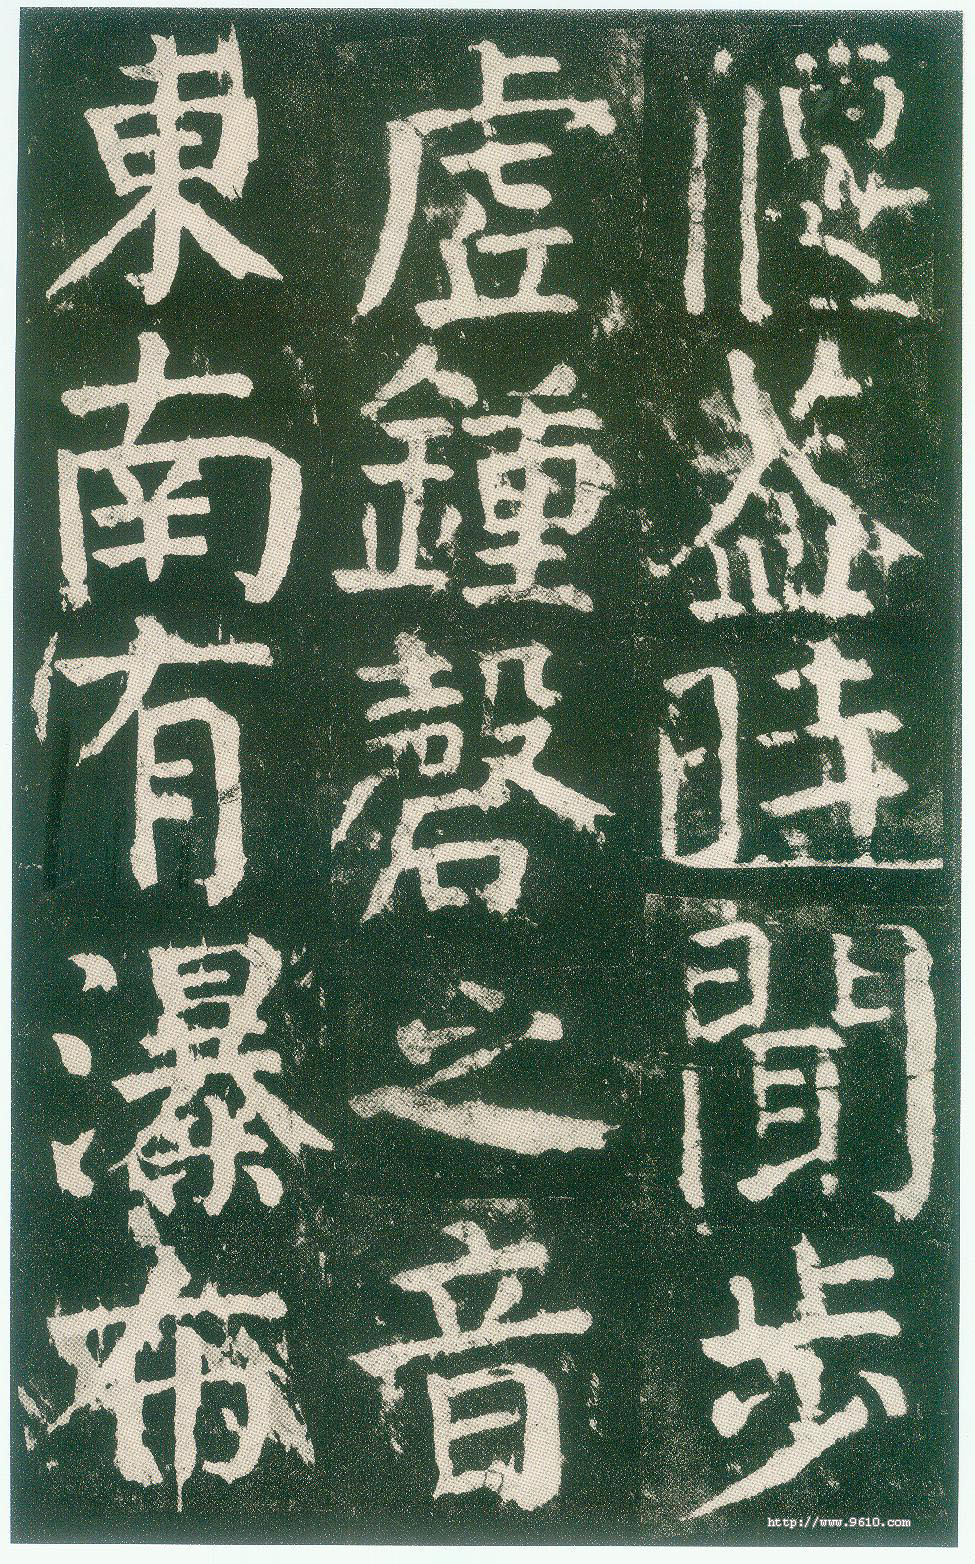 偃蓋時聞步
虛鍾磬之音
東南有瀑布
http://www.9610.com